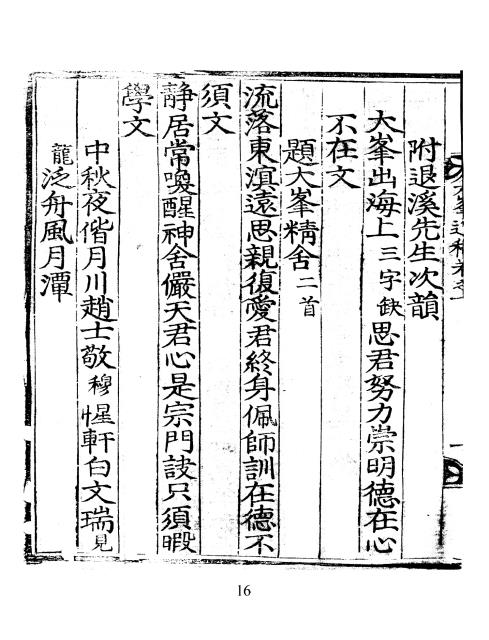 附退溪先生次韻
大峯出海上三字缺思君努力崇明德在心
不在文
題大峯精舍二首
流落東溟遠思親復愛君終身佩師訓在德不
須文
靜居常喚醒神舍儼天君心是宗門訣只須暇
學文
中秋夜偕月川趙士敬穆惺軒白文瑞見
龍泛舟風月潭
16